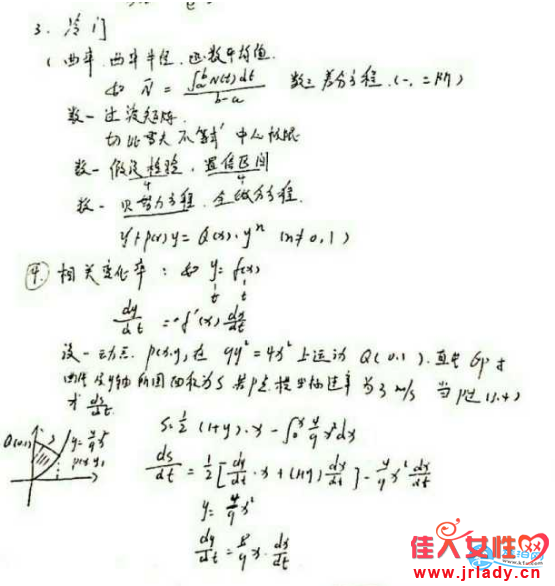 3. 冷门
(曲率、曲率半径、函数平均值.
如 N̄ = ∫ₐᵇN(t)dt / (b-a) 数三 差分方程.(一、二阶)
数一 过渡矩阵.
切比雪夫不等式 中心极限
数一 假设检验、置信区间
4 4
数一、贝努力方程、全微分方程.
y'+p(x)y = Q(x)·yⁿ (n≠0,1)
④ 相关变化率: 如 y = f(x)
t t
dy/dt = f'(x) dx/dt
设一动点 P(x,y) 在 9y=4x² 上运动 Q(0,1). 直线 QP 与
曲线及y轴所围面积为S 若P点 横坐标速率为3 m/s 当P过(3,4)
求 ds/dt.
Q(0,1) y=4/9x²
P(x,y)
S=1/2 (1+y)·x - ∫₀ˣ 4/9 x²dx
ds/dt = 1/2[dy/dt·x + (1+y)dx/dt] - 4/9x² dx/dt
y = 4/9 x²
dy/dt = 8/9 x·dx/dt
佳人女性网
www.jrlady.cn